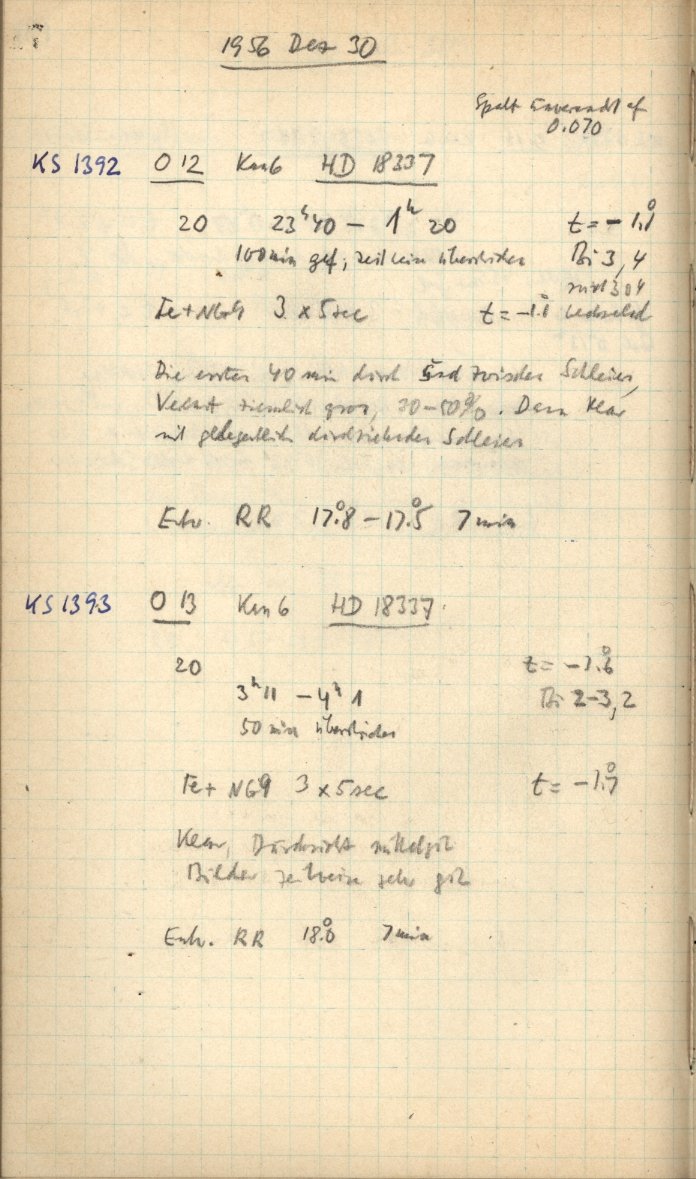 1956 Dez 30
Spalt unverändt auf
0.070
KS 1392 O 12 Km6 HD 18337
20 23ʰ40 – 1ʰ 20 t = – 1.°1
100 min gef, zeitweise überstrichen Bi 3, 4
3 0 4
Fe + NG9 3 x 5 sec t = –1.° wechselnd
Die ersten 40 min durch und zwischen Schleier,
Verlust ziemlich gross, 30–50%. Dann klar
mit gelegentlich durchziehenden Schleier
Entw. RR 17.°8 – 17.°5 7 min
KS 1393 O 13 Km 6 HD 18337
20 t = – 1.°6
3ʰ 11 – 4ʰ 1 Bi 2–3, 2
50 min überstrichen
Fe + NG9 3 x 5 sec t = – 1.°7
Klar, Durchsicht mittelgut
Bilder zeitweise sehr gut
Entw. RR 18.°0 7 min